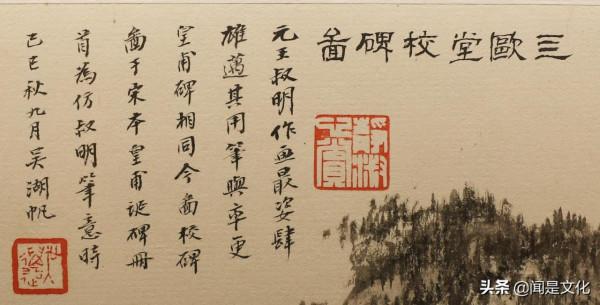 三歐堂校碑啚
元王叔明作画最姿肆
雄邁其用筆與率更
皇甫碑相同今啚校碑
啚于宋本皇甫诞碑册
首為仿叔明筆意時
己巳秋九月吳湖帆
头条 @闻是文化